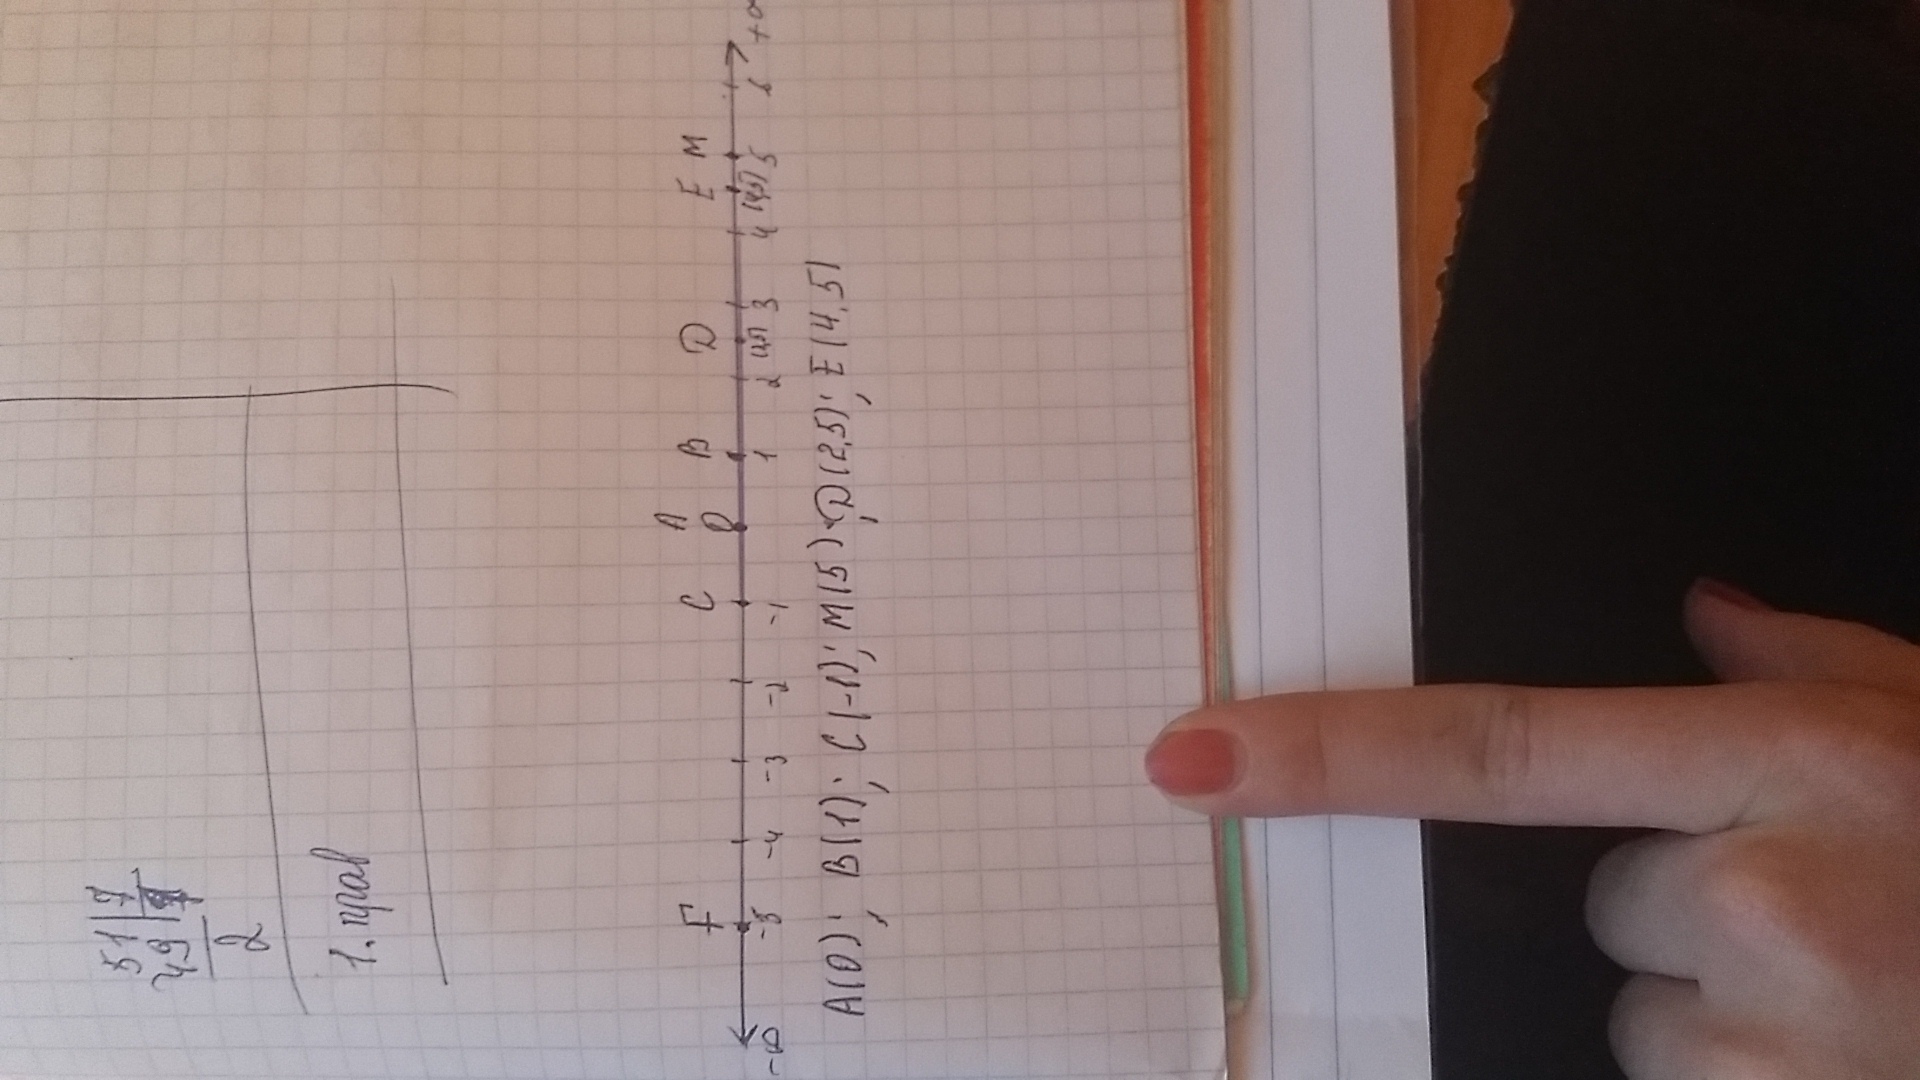 51 7
49
2
1. прав
F C A B D E M
O
-∞ -5 -4 -3 -2 -1 1 2 (2,5) 3 4 (4,5) 5 6 +∞
A(0); B(1); C(-1); M(5); D(2,5); E(4,5)